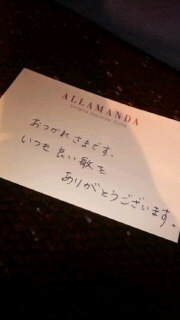 ALLAMANDA
おつかれさまです。
いつも良い歌を
ありがとうございます。